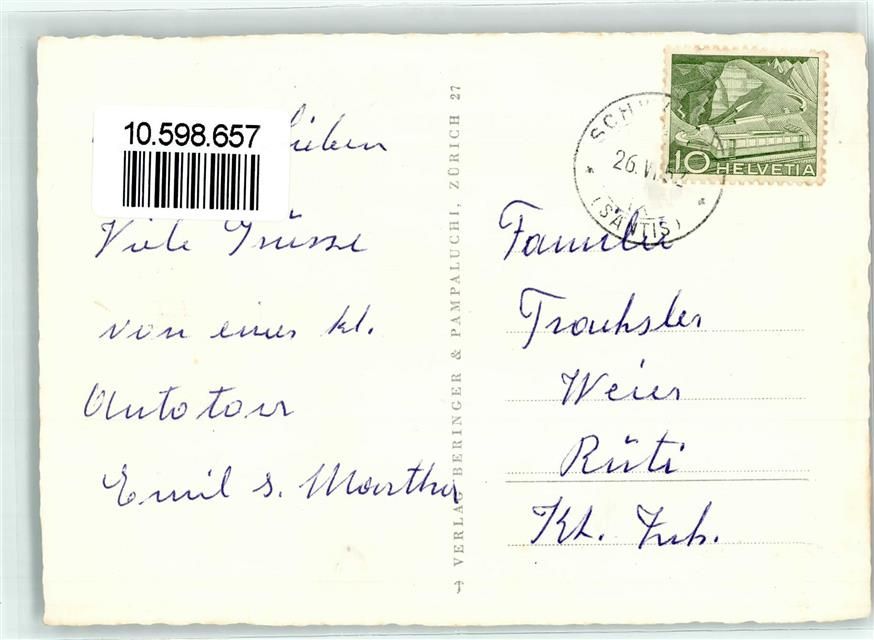 10.598.657
lieben
Viele Grüsse
von einer kl.
Autotour
Emil & Martha
VERLAG BERINGER & PAMPALUCHI, ZÜRICH 27
10 HELVETIA
26.VI.
(SÄNTIS)
Familie
Trachsler
Weier
Rüti
Kt. Zch.